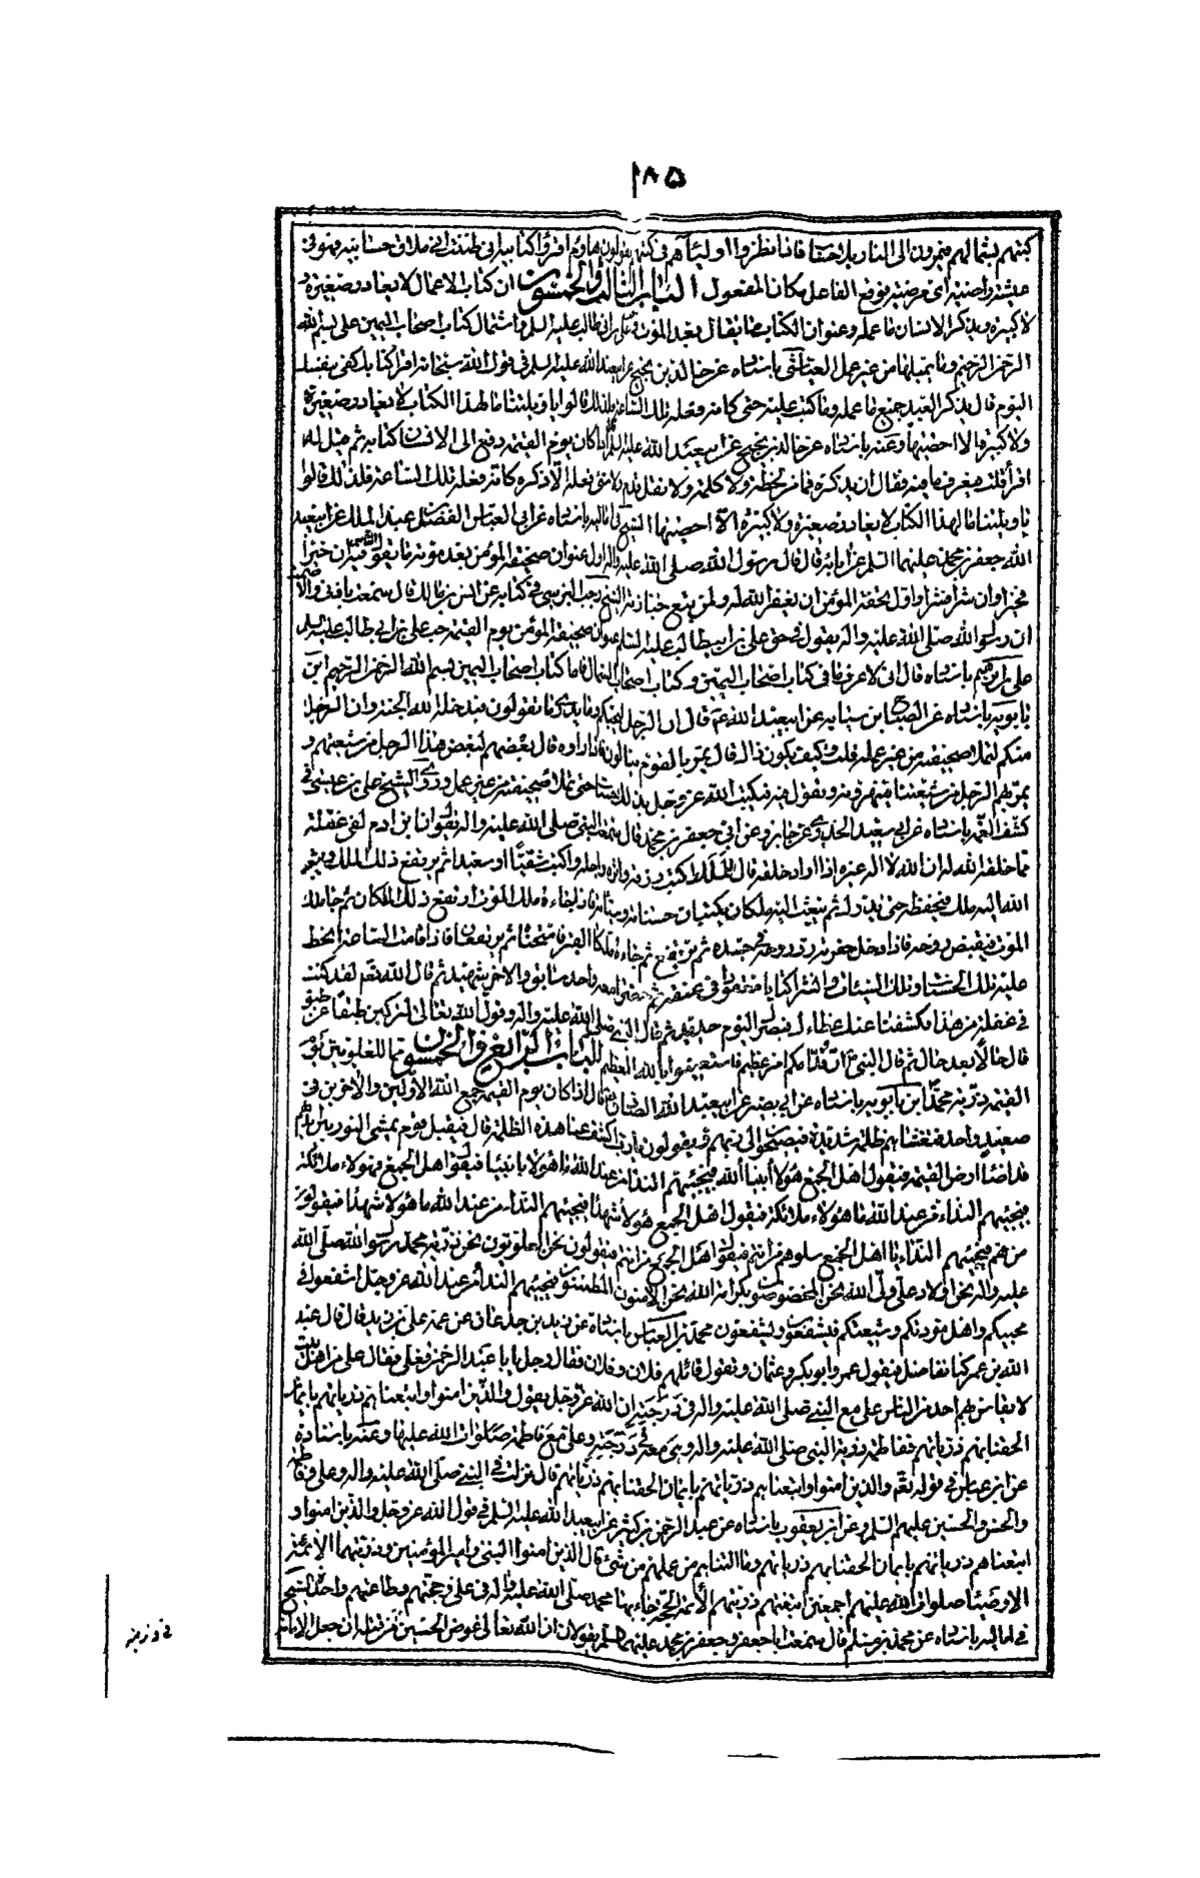 ١٨٥
كتبهم بشمالهم فيمرون الى النار بلا حساب فاذا نظروا اوليائهم في كتبهم يقولون هاؤم اقرؤا كتابيه اني ظننت اني ملاق حسابيه فهو في
عيشة راضية اي مرضية فوضع الفاعل مكان المفعول الباب الثالث والخمسون ان كتاب الاعمال لا يغادر صغيرة و
لا كبيرة ويذكر الانسان ما عمله وعنوان الكتاب وما يقال بعد الموت علي بن ابي طالب عليه السلم واشتمال كتاب اصحاب اليمين على بسم الله
الرحمن الرحيم وما يمتلها من غير عمل العياشي باسناده عن خالد بن نجيح عن ابي عبد الله عليه السلم في قول الله سبحانه اقرا كتابك كفى بنفسك
اليوم قال يذكر العبد جميع ما عمله وما كتب عليه حتى كانه فعله تلك الساعة فلذلك قالوا يا ويلتنا ما لهذا الكتاب لا يغادر صغيرة
ولا كبيرة الا احصيها وعنه باسناده عن خالد بن نجيح عن ابي عبد الله عليه السلم اذا كان يوم القيمة دفع الى الانسان كتابه ثم قيل له
اقرأ قلت فيعرف ما فيه فقال ان يذكره فما من لحظة ولا كلمة ولا نقل قدم ولا شئ فعله الا ذكره كانه فعله تلك الساعة فلذلك قالوا
يا ويلتنا ما لهذا الكتاب لا يغادر صغيرة ولا كبيرة الا احصيها الشيخ في اماليه باسناده عن ابي العباس الفضل عبد الملك عن ابي عبد
الله جعفر بن محمد عليهما السلم عن ابائه قال قال رسول الله صلى الله عليه واله اول عنوان صحيفة المؤمن بعد موته ما يقول الناس فيه ان خيرا
فخير اوان شرا فشرا واول تحفة المؤمن ان يغفر الله له ولمن تبع جنازته الشيخ رجب البرسي في كتابه عن انس بن مالك قال سمعت باذني والا صمتا
ان رسول الله صلى الله عليه واله يقول في حق علي بن ابي طالب عليه السلم عنوان صحيفة المؤمن يوم القيمة حب علي بن ابي طالب عليه السلم
علي بن ابراهيم باسناده قال اني لا عرف ما في كتاب اصحاب اليمين وكتاب اصحاب الشمال فاما كتاب اصحاب اليمين بسم الله الرحمن الرحيم ابن
بابويه باسناده عن الصباح ابن سيابه عن ابي عبد الله عم قال ان الرجل ليحبكم وما يدري ما تقولون فيدخله الله الجنة وان الرجل
منكم لتملا صحيفته من غير عمل قلت وكيف يكون ذاك قال يمر بالقوم ينالون فاذا راوه قال بعضهم لبعض هذا الرجل من شيعتهم و
يمر بهم الرجل من شيعتنا فينهرونه ويقول فيه فيكتب الله عز وجل بذلك حسنات حتى تملا صحيفته من غير عمل وروى الشيخ علي بن عيسى في
كشف الغمه باسناده عن ابي سعيد الخدري عن جابر وعن ابي جعفر بن محمد قال سمعت النبي صلى الله عليه واله يقول ان ابن ادم لفي غفلة
مما خلقه الله له ان الله لا اله غيره اذا اراد خلقه قال للملك اكتب رزقه واثره واجله واكتب شقيا او سعيدا ثم يرتفع ذلك الملك ويبعث
الله اليه ملك فيحفظه حتى يدرك ثم يبعث اليه ملكان يكتبان حسناته وسيئاته فاذا جاءه ملك الموت ارتفع ذلك الملكان ثم جاء ملك
الموت فيقبض روحه فاذا دخل حفرته رد روحه في جسده ثم يرتفع ثم جاءه ملكا القبر فامتحنا ثم يرتفعان فاذا قامت الساعة انحط
عليه تلك الحسنات وتلك السيئات وانشرا كتابا معقودا في عنقه ثم حضرا معه واحد سابق والاخر شهيد ثم قال الله تعم لقد كنت
في غفلة من هذا فكشفنا عنك غطاءك فبصرك اليوم حديد ثم قال النبي صلى الله عليه واله وقول الله تعالى لتركبن طبقا عن طبق
قال حالا بعد حال ثم قال النبي ان قدامكم امر عظيم فاستعينوا بالله العظيم الباب الرابع والخمسون مما للعلويين يوم
القيمة ذرية محمد ابن بابويه باسناده عن ابي بصير عن ابي عبد الله الصادق قال اذا كان يوم القيمة جمع الله الاولين والاخرين في
صعيد واحد فتغشاهم ظلمة شديدة فيضجون الى ربهم ويقولون يا رب اكشف عنا هذه الظلمة قال فيقبل قوم يمشي النور بين ايديهم
قد اضاء ارض القيمة فيقول اهل الجمع هؤلاء أنبياء الله فيجيئهم النداء من عند الله ما هؤلاء بانبياء فيقول اهل الجمع فهؤلاء ملائكة
فيجيئهم النداء من عند الله ما هؤلاء ملائكة فيقول اهل الجمع هؤلاء شهداء فيجيئهم النداء من عند الله ما هؤلاء شهداء فيقولون
من هم فيجيئهم النداء يا اهل الجمع سلوهم من انتم فيقول اهل الجمع من انتم فيقولون نحن العلويون نحن ذرية محمد رسول الله صلى الله
عليه واله نحن اولاد علي ولي الله نحن المخصوصون بكرامة الله نحن الامنون المطمئنون فيجيئهم النداء من عند الله عز وجل اشفعوا في
محبيكم واهل مودتكم وشيعتكم فيشفعون ويشفعون محمد بن العباس باسناده عن زيد بن جدعان عن عمه علي بن زيد قال قال عبد
الله بن عمر كنا نفاضل فيقول عمر وابو بكر وعثمان ويقول قائلهم فلان وفلان فقال رجل يا ابا عبد الرحمن فعلي فقال علي من اهل بيت
لا يقاس بهم احد من الناس علي مع النبي صلى الله عليه واله في درجته ان الله عز وجل يقول والذين امنوا واتبعناهم ذرياتهم بايمان
الحقنا بهم ذرياتهم ففاطمة ذرية النبي صلى الله عليه واله وهي معه في درجته وعلي مع فاطمة صلوات الله عليها وعنه باسناده
عن ابن عباس في قوله تعم والذين امنوا واتبعناهم ذرياتهم بايمان الحقنا بهم ذرياتهم قال نزلت في النبي صلى الله عليه واله وعلي وفاطمة
والحسن والحسين عليهم السلم وعن ابن يعقوب باسناده عن عبد الرحمن بن كثير عن ابي عبد الله عليه السلم في قول الله عز وجل والذين امنوا و
اتبعناهم ذرياتهم بايمان الحقنا بهم ذرياتهم وما التناهم من عملهم من شئ قال الذين امنوا النبي وامير المؤمنين وذريتهما الائمة
الاوصياء صلوات الله عليهم اجمعين اتبعتهم ذريتهم الائمة الحجة جاء بها محمد صلى الله عليه واله في علي وحجتهم وطاعتهم واحدة الشيخ
في اماليه باسناده عن محمد بن مسلم قال سمعت ابا جعفر وجعفر بن محمد عليهم السلم يقولان ان الله تعالى عوض الحسين من قتله ان جعل الامامة
في ذريته